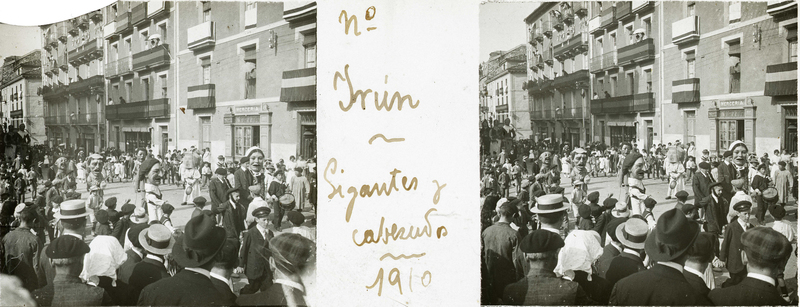 Nº
Irún
~
Gigantes y
cabezudos
~
1910